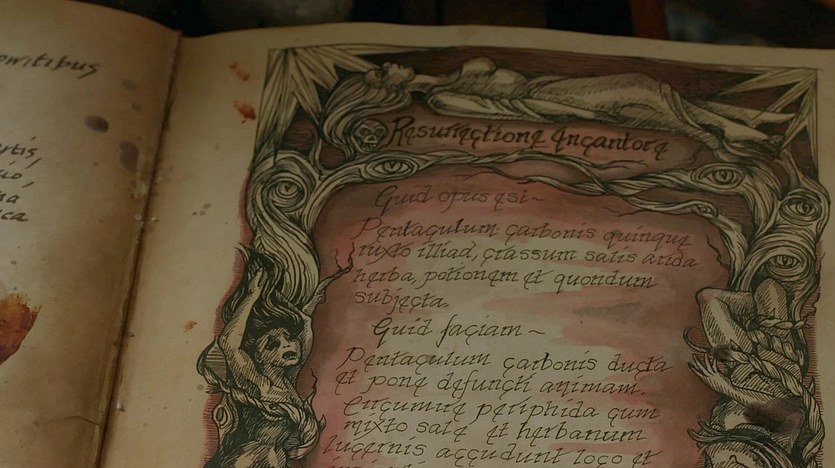 Resurrectione Incantore
Quid opus est~
Pentaculum carbonis quinque
mixto illiad, crassum salis arida
herba, potionem et quondum
subjecta.
Quid faciam~
Pentaculum carbonis ducta
et pone defuncti animam.
Circumire periphida cum
mixto sale et herbanum
lucernis accudunt loco et